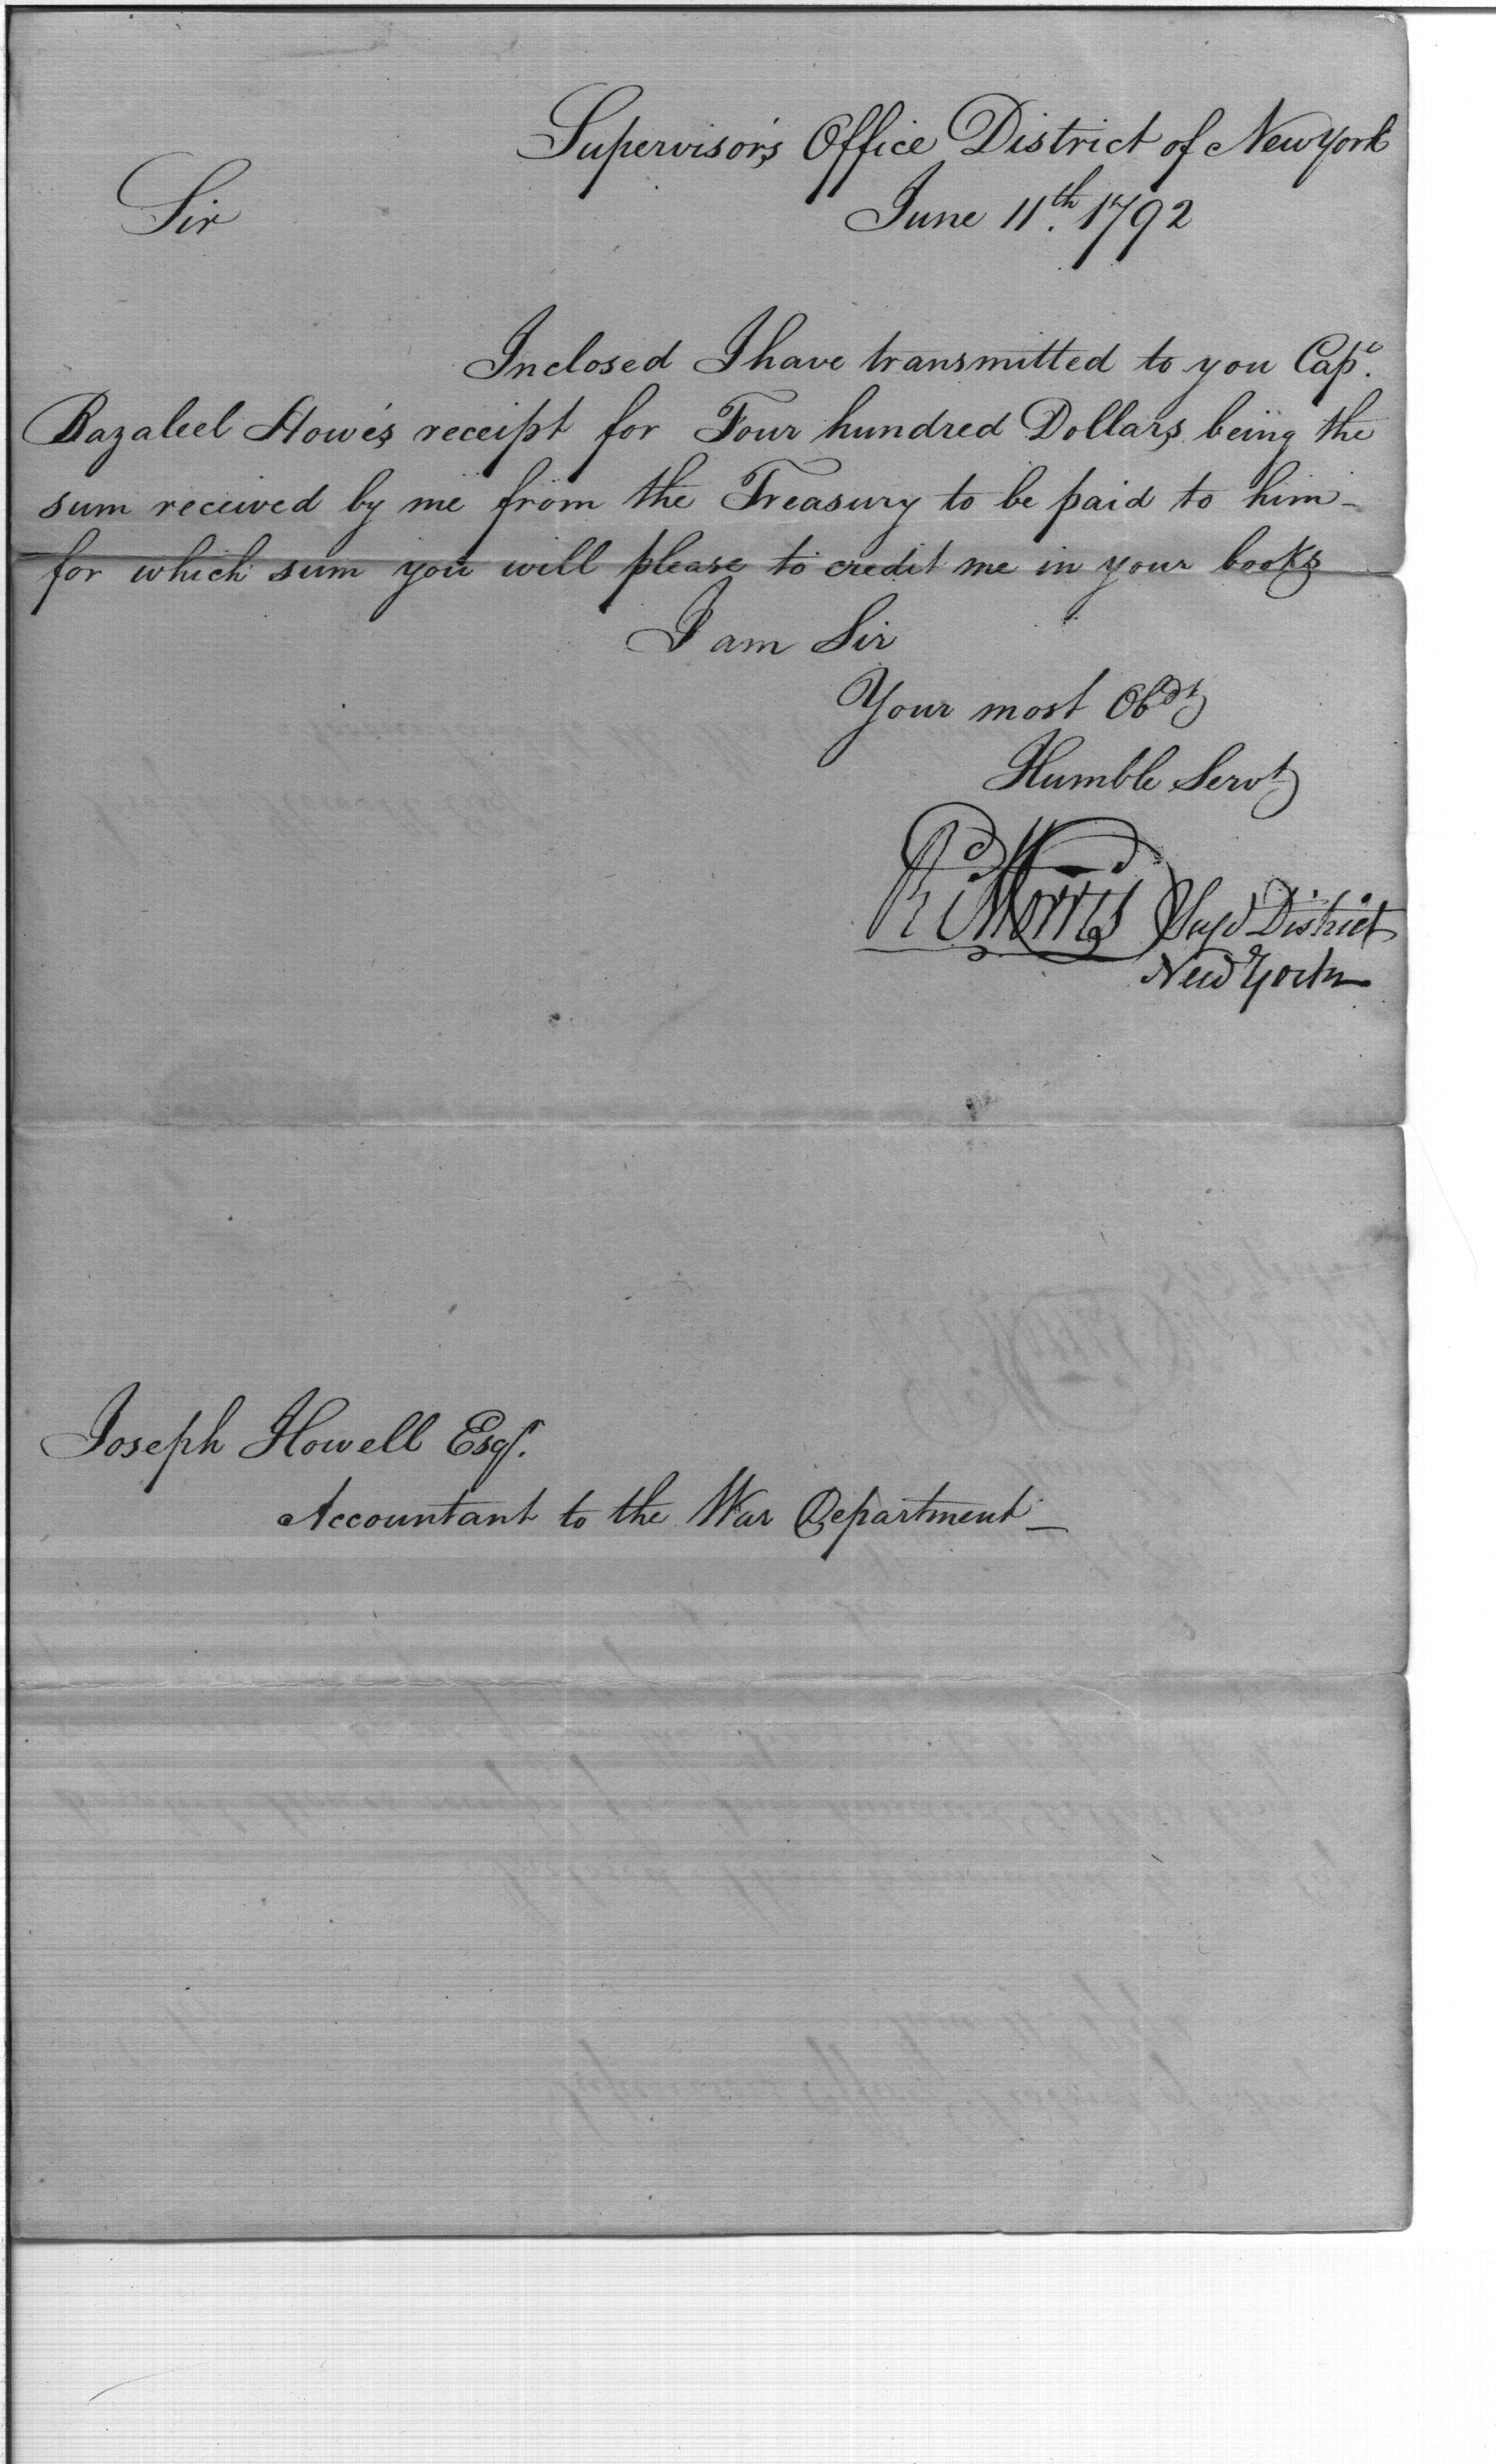 Supervisor's Office District of New York
June 11th. 1792
Sir
Inclosed I have transmitted to you Capt.
Bazaleel Howe's receipt for Four hundred Dollars being the
sum received by me from the Treasury to be paid to him –
for which sum you will please to credit me in your books
I am Sir
Your most Obdt
Humble Servt
Rd Morris Supr District
New York
Joseph Howell Esqr.
Accountant to the War Department –